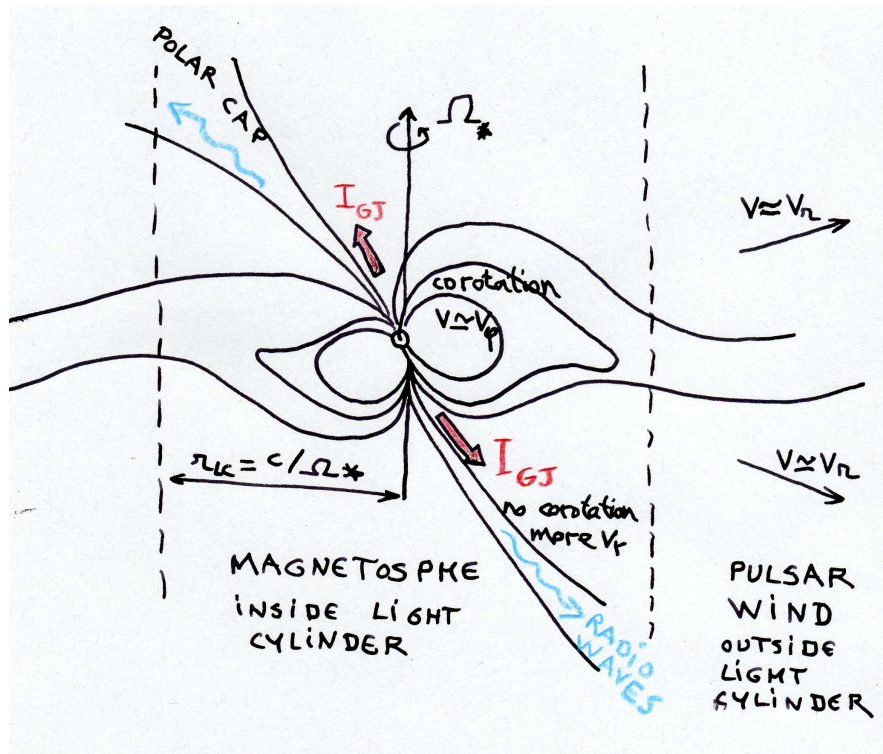 POLAR
CAP
Ω*
I GJ
V≃Vr
corotation
V≃Vφ
rLC = c/Ω*
I GJ
V≃Vr
no corotation
more Vr
MAGNETOSPHE
INSIDE LIGHT
CYLINDER
RADIO
WAVES
PULSAR
WIND
OUTSIDE
LIGHT
CYLINDER